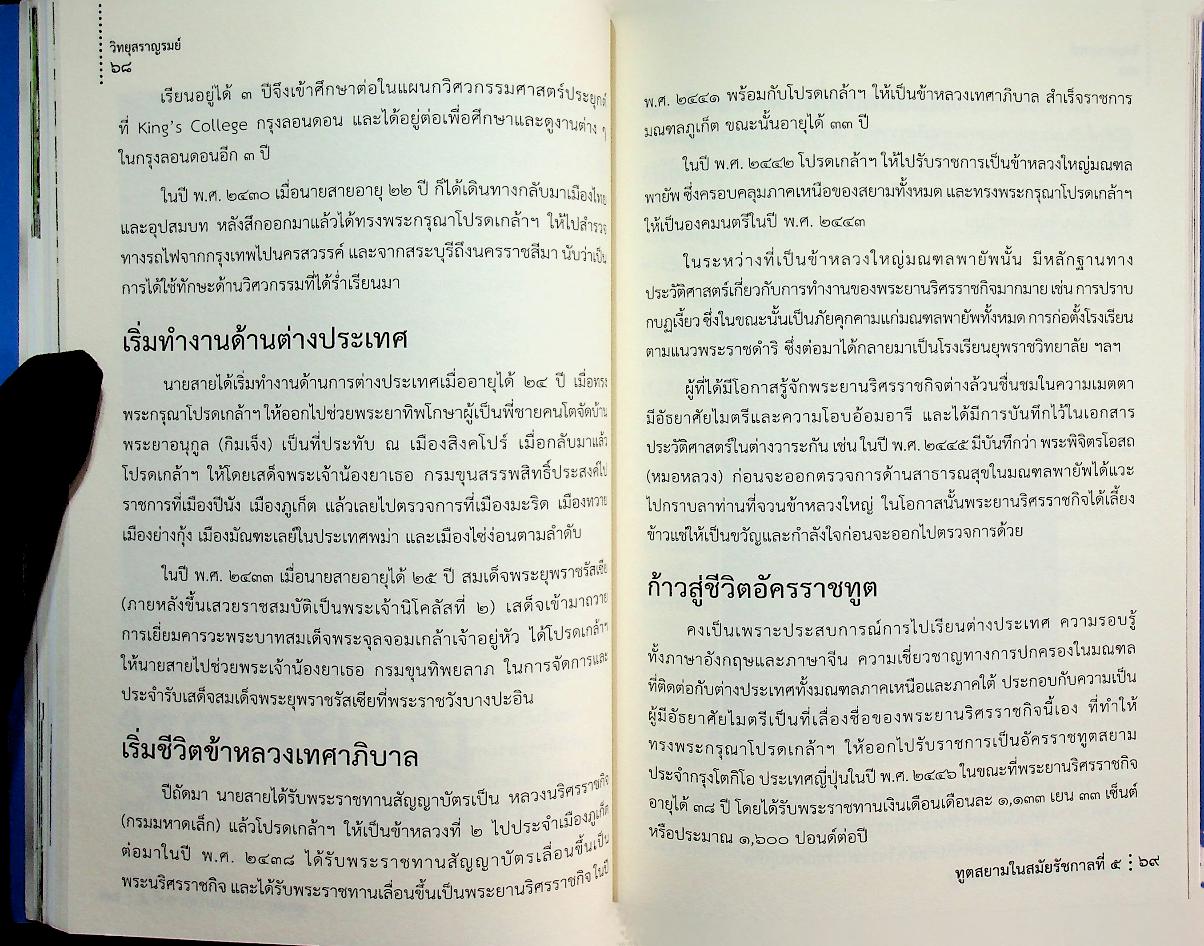 วิทยุสราญรมย์
๖๘
เรียนอยู่ได้ ๓ ปีจึงเข้าศึกษาต่อในแผนกวิศวกรรมศาสตร์ประยุกต์
ที่ King's College กรุงลอนดอน และได้อยู่ต่อเพื่อศึกษาและดูงานต่าง ๆ
ในกรุงลอนดอนอีก ๓ ปี
ในปี พ.ศ. ๒๔๓๐ เมื่อนายสายอายุ ๒๒ ปี ก็ได้เดินทางกลับมาเมืองไทย
และอุปสมบท หลังสึกออกมาแล้วได้ทรงพระกรุณาโปรดเกล้าฯ ให้ไปสำรวจ
ทางรถไฟจากกรุงเทพไปนครสวรรค์ และจากสระบุรีถึงนครราชสีมา นับว่าเป็น
การได้ใช้ทักษะด้านวิศวกรรมที่ได้ร่ำเรียนมา
เริ่มทำงานด้านต่างประเทศ
นายสายได้เริ่มทำงานด้านการต่างประเทศเมื่ออายุได้ ๒๔ ปี เมื่อทรง
พระกรุณาโปรดเกล้าฯ ให้ออกไปช่วยพระยาทิพโกษาผู้เป็นพี่ชายคนโตจัดบ้าน
พระยาอนุกูล (กิมเจ็ง) เป็นที่ประทับ ณ เมืองสิงคโปร์ เมื่อกลับมาแล้ว
โปรดเกล้าฯ ให้โดยเสด็จพระเจ้าน้องยาเธอ กรมขุนสรรพสิทธิ์ประสงค์ไป
ราชการที่เมืองปีนัง เมืองภูเก็ต แล้วเลยไปตรวจการที่เมืองมะริด เมืองทวาย
เมืองย่างกุ้ง เมืองมัณฑะเลย์ในประเทศพม่า และเมืองไซ่ง่อนตามลำดับ
ในปี พ.ศ. ๒๔๓๓ เมื่อนายสายอายุได้ ๒๕ ปี สมเด็จพระยุพราชรัสเซีย
(ภายหลังขึ้นเสวยราชสมบัติเป็นพระเจ้านิโคลัสที่ ๒) เสด็จเข้ามาถวาย
การเยี่ยมคารวะพระบาทสมเด็จพระจุลจอมเกล้าเจ้าอยู่หัว ได้โปรดเกล้าฯ
ให้นายสายไปช่วยพระเจ้าน้องยาเธอ กรมขุนทิพยลาภ ในการจัดการและ
ประจำรับเสด็จสมเด็จพระยุพราชรัสเซียที่พระราชวังบางปะอิน
เริ่มชีวิตข้าหลวงเทศาภิบาล
ปีถัดมา นายสายได้รับพระราชทานสัญญาบัตรเป็น หลวงนริศรราชกิจ
(กรมมหาดเล็ก) แล้วโปรดเกล้าฯ ให้เป็นข้าหลวงที่ ๒ ไปประจำเมืองภูเก็ต
ต่อมาในปี พ.ศ. ๒๔๓๘ ได้รับพระราชทานสัญญาบัตรเลื่อนขึ้นเป็น
พระนริศรราชกิจ และได้รับพระราชทานเลื่อนขึ้นเป็นพระยานริศรราชกิจ ในปี
พ.ศ. ๒๔๔๑ พร้อมกับโปรดเกล้าฯ ให้เป็นข้าหลวงเทศาภิบาล สำเร็จราชการ
มณฑลภูเก็ต ขณะนั้นอายุได้ ๓๓ ปี
ในปี พ.ศ. ๒๔๔๒ โปรดเกล้าฯ ให้ไปรับราชการเป็นข้าหลวงใหญ่มณฑล
พายัพ ซึ่งครอบคลุมภาคเหนือของสยามทั้งหมด และทรงพระกรุณาโปรดเกล้าฯ
ให้เป็นองคมนตรีในปี พ.ศ. ๒๔๔๓
ในระหว่างที่เป็นข้าหลวงใหญ่มณฑลพายัพนั้น มีหลักฐานทาง
ประวัติศาสตร์เกี่ยวกับการทำงานของพระยานริศรราชกิจมากมาย เช่น การปราบ
กบฏเงี้ยว ซึ่งในขณะนั้นเป็นภัยคุกคามแก่มณฑลพายัพทั้งหมด การก่อตั้งโรงเรียน
ตามแนวพระราชดำริ ซึ่งต่อมาได้กลายมาเป็นโรงเรียนยุพราชวิทยาลัย ฯลฯ
ผู้ที่ได้มีโอกาสรู้จักพระยานริศรราชกิจต่างล้วนชื่นชมในความเมตตา
มีอัธยาศัยไมตรีและความโอบอ้อมอารี และได้มีการบันทึกไว้ในเอกสาร
ประวัติศาสตร์ในต่างวาระกัน เช่น ในปี พ.ศ. ๒๔๔๕ มีบันทึกว่า พระพิจิตรโอสถ
(หมอหลวง) ก่อนจะออกตรวจการด้านสาธารณสุขในมณฑลพายัพได้แวะ
ไปกราบลาท่านที่จวนข้าหลวงใหญ่ ในโอกาสนั้นพระยานริศรราชกิจได้เลี้ยง
ข้าวแช่ให้เป็นขวัญและกำลังใจก่อนจะออกไปตรวจการด้วย
ก้าวสู่ชีวิตอัครราชทูต
คงเป็นเพราะประสบการณ์การไปเรียนต่างประเทศ ความรอบรู้
ทั้งภาษาอังกฤษและภาษาจีน ความเชี่ยวชาญทางการปกครองในมณฑล
ที่ติดต่อกับต่างประเทศทั้งมณฑลภาคเหนือและภาคใต้ ประกอบกับความเป็น
ผู้มีอัธยาศัยไมตรีเป็นที่เลื่องชื่อของพระยานริศรราชกิจนี้เอง ที่ทำให้
ทรงพระกรุณาโปรดเกล้าฯ ให้ออกไปรับราชการเป็นอัครราชทูตสยาม
ประจำกรุงโตกิโอ ประเทศญี่ปุ่นในปี พ.ศ. ๒๔๔๖ ในขณะที่พระยานริศรราชกิจ
อายุได้ ๓๘ ปี โดยได้รับพระราชทานเงินเดือนเดือนละ ๑,๑๓๓ เยน ๓๓ เซ็นต์
หรือประมาณ ๑,๖๐๐ ปอนด์ต่อปี
ทูตสยามในสมัยรัชกาลที่ ๕ ๖๙